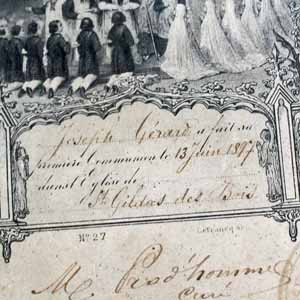 Joseph Gérard a fait sa
première Communion le 13 juin 1897
dans l'Eglise de
St Gildas des Bois
No. 27
M Prod'homme
Curé